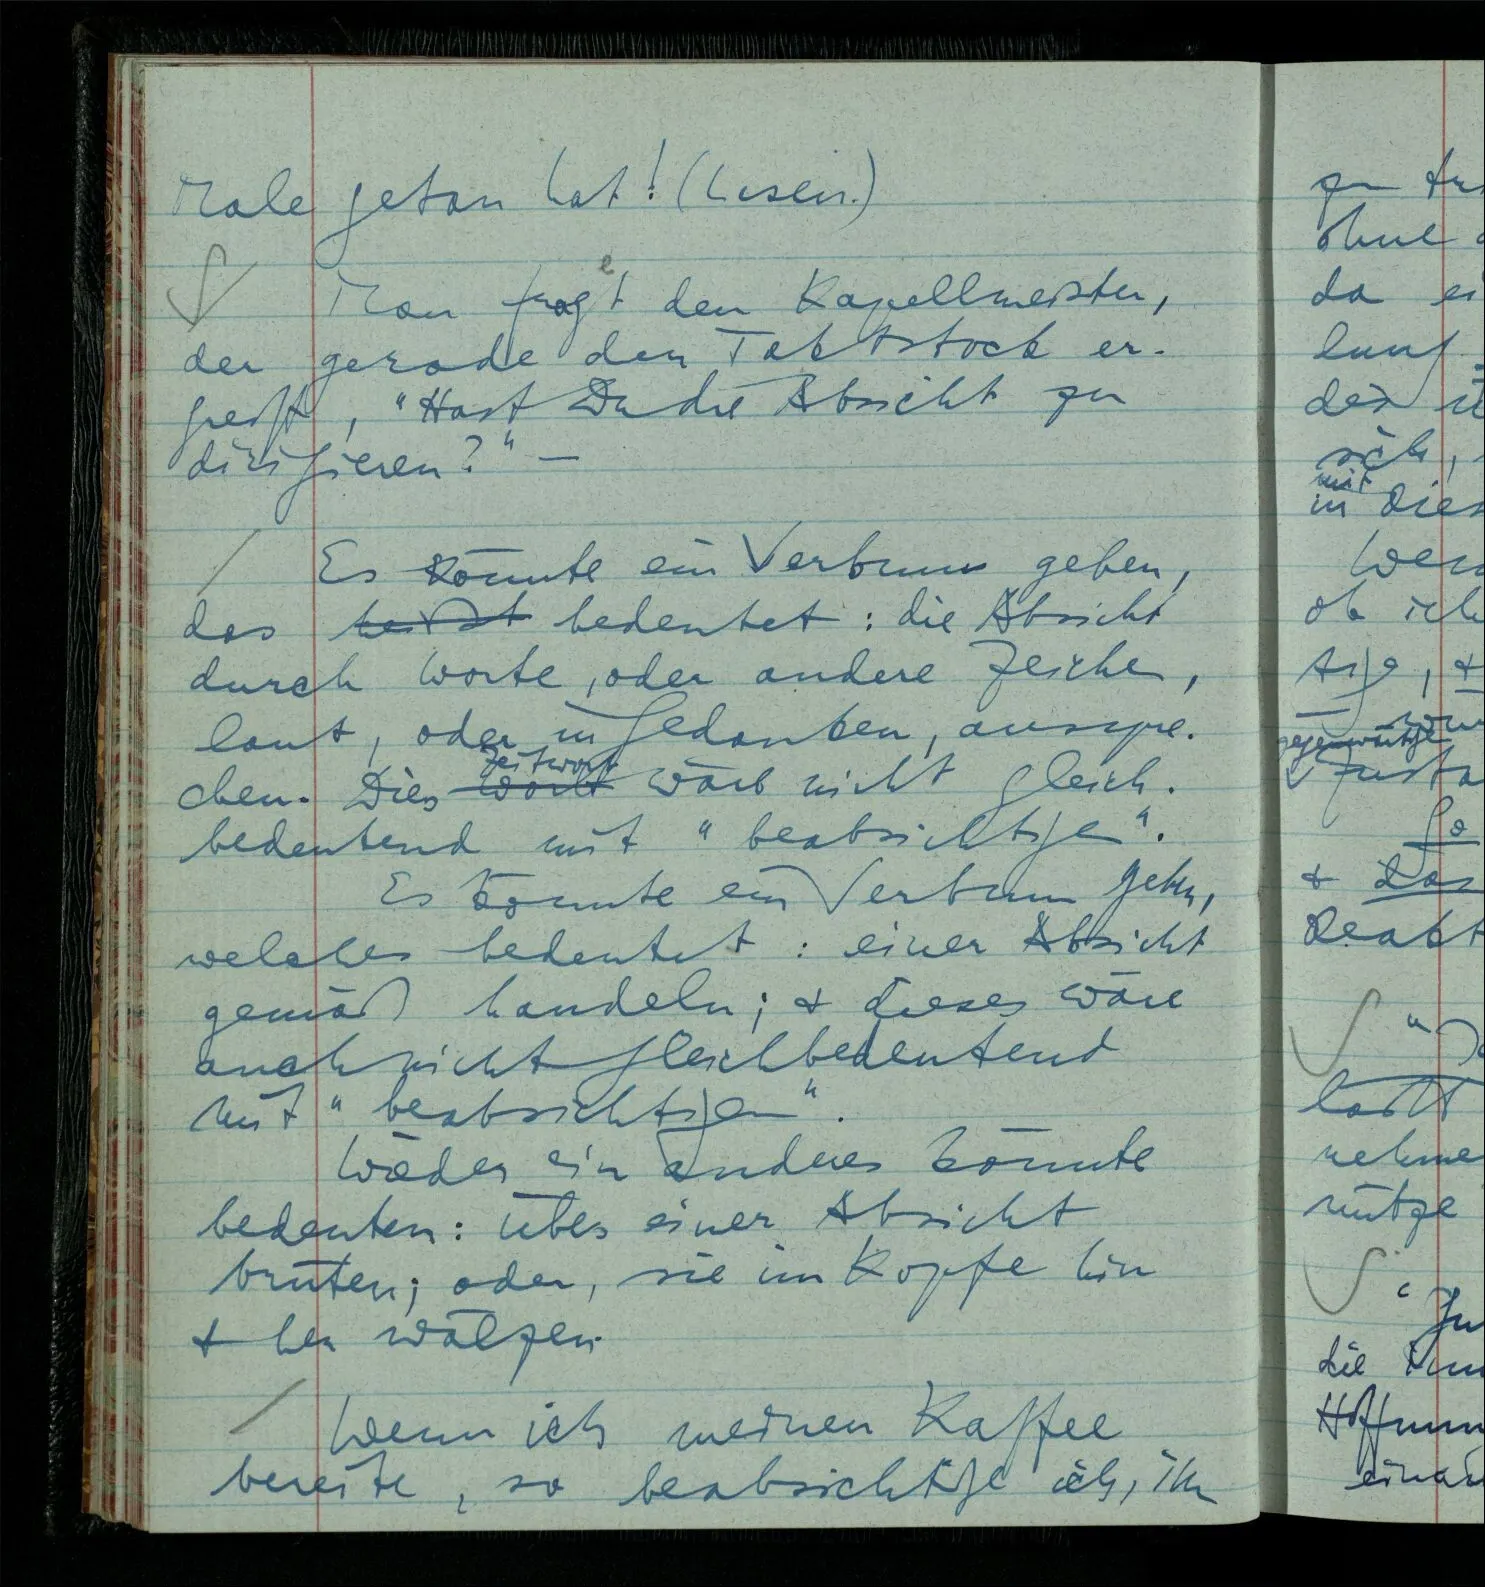 Male getan hat! (Lesen.)
Man fragt den Kapellmeister,
der gerade den Taktstock er-
greift, "Hast Du die Absicht zu
dirigieren?" —
Es könnte ein Verbum geben,
das heißt bedeutet: die Absicht
durch Worte, oder andere Zeichen,
laut, oder in Gedanken, ausspre-
Zeitwort
chen. Dies Wort wäre nicht gleich-
bedeutend mit "beabsichtigen".
Es könnte ein Verbum geben,
welches bedeutet: einer Absicht
gemäß handeln; & dieses wäre
auch nicht gleichbedeutend
mit "beabsichtigen".
Wieder ein anderes könnte
bedeuten: über einer Absicht
brüten; oder, sie im Kopfe hin
& her wälzen.
Wenn ich meinen Kaffee
bereite, so beabsichtige ich, ihn
zu
ohne
da
sich,
mit
in
ob ich
gegenwärtige
So
& das
nehme
die